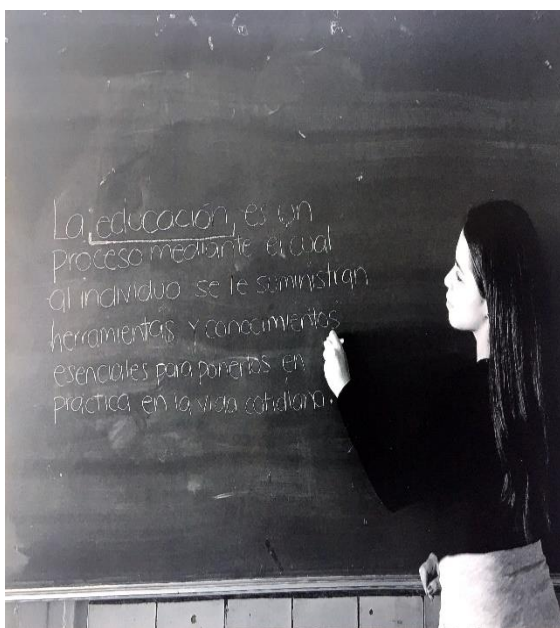 La educación, es un
proceso mediante el cual
al individuo se le suministran
herramientas y conocimientos
esenciales para ponerlos en
práctica en la vida cotidiana.